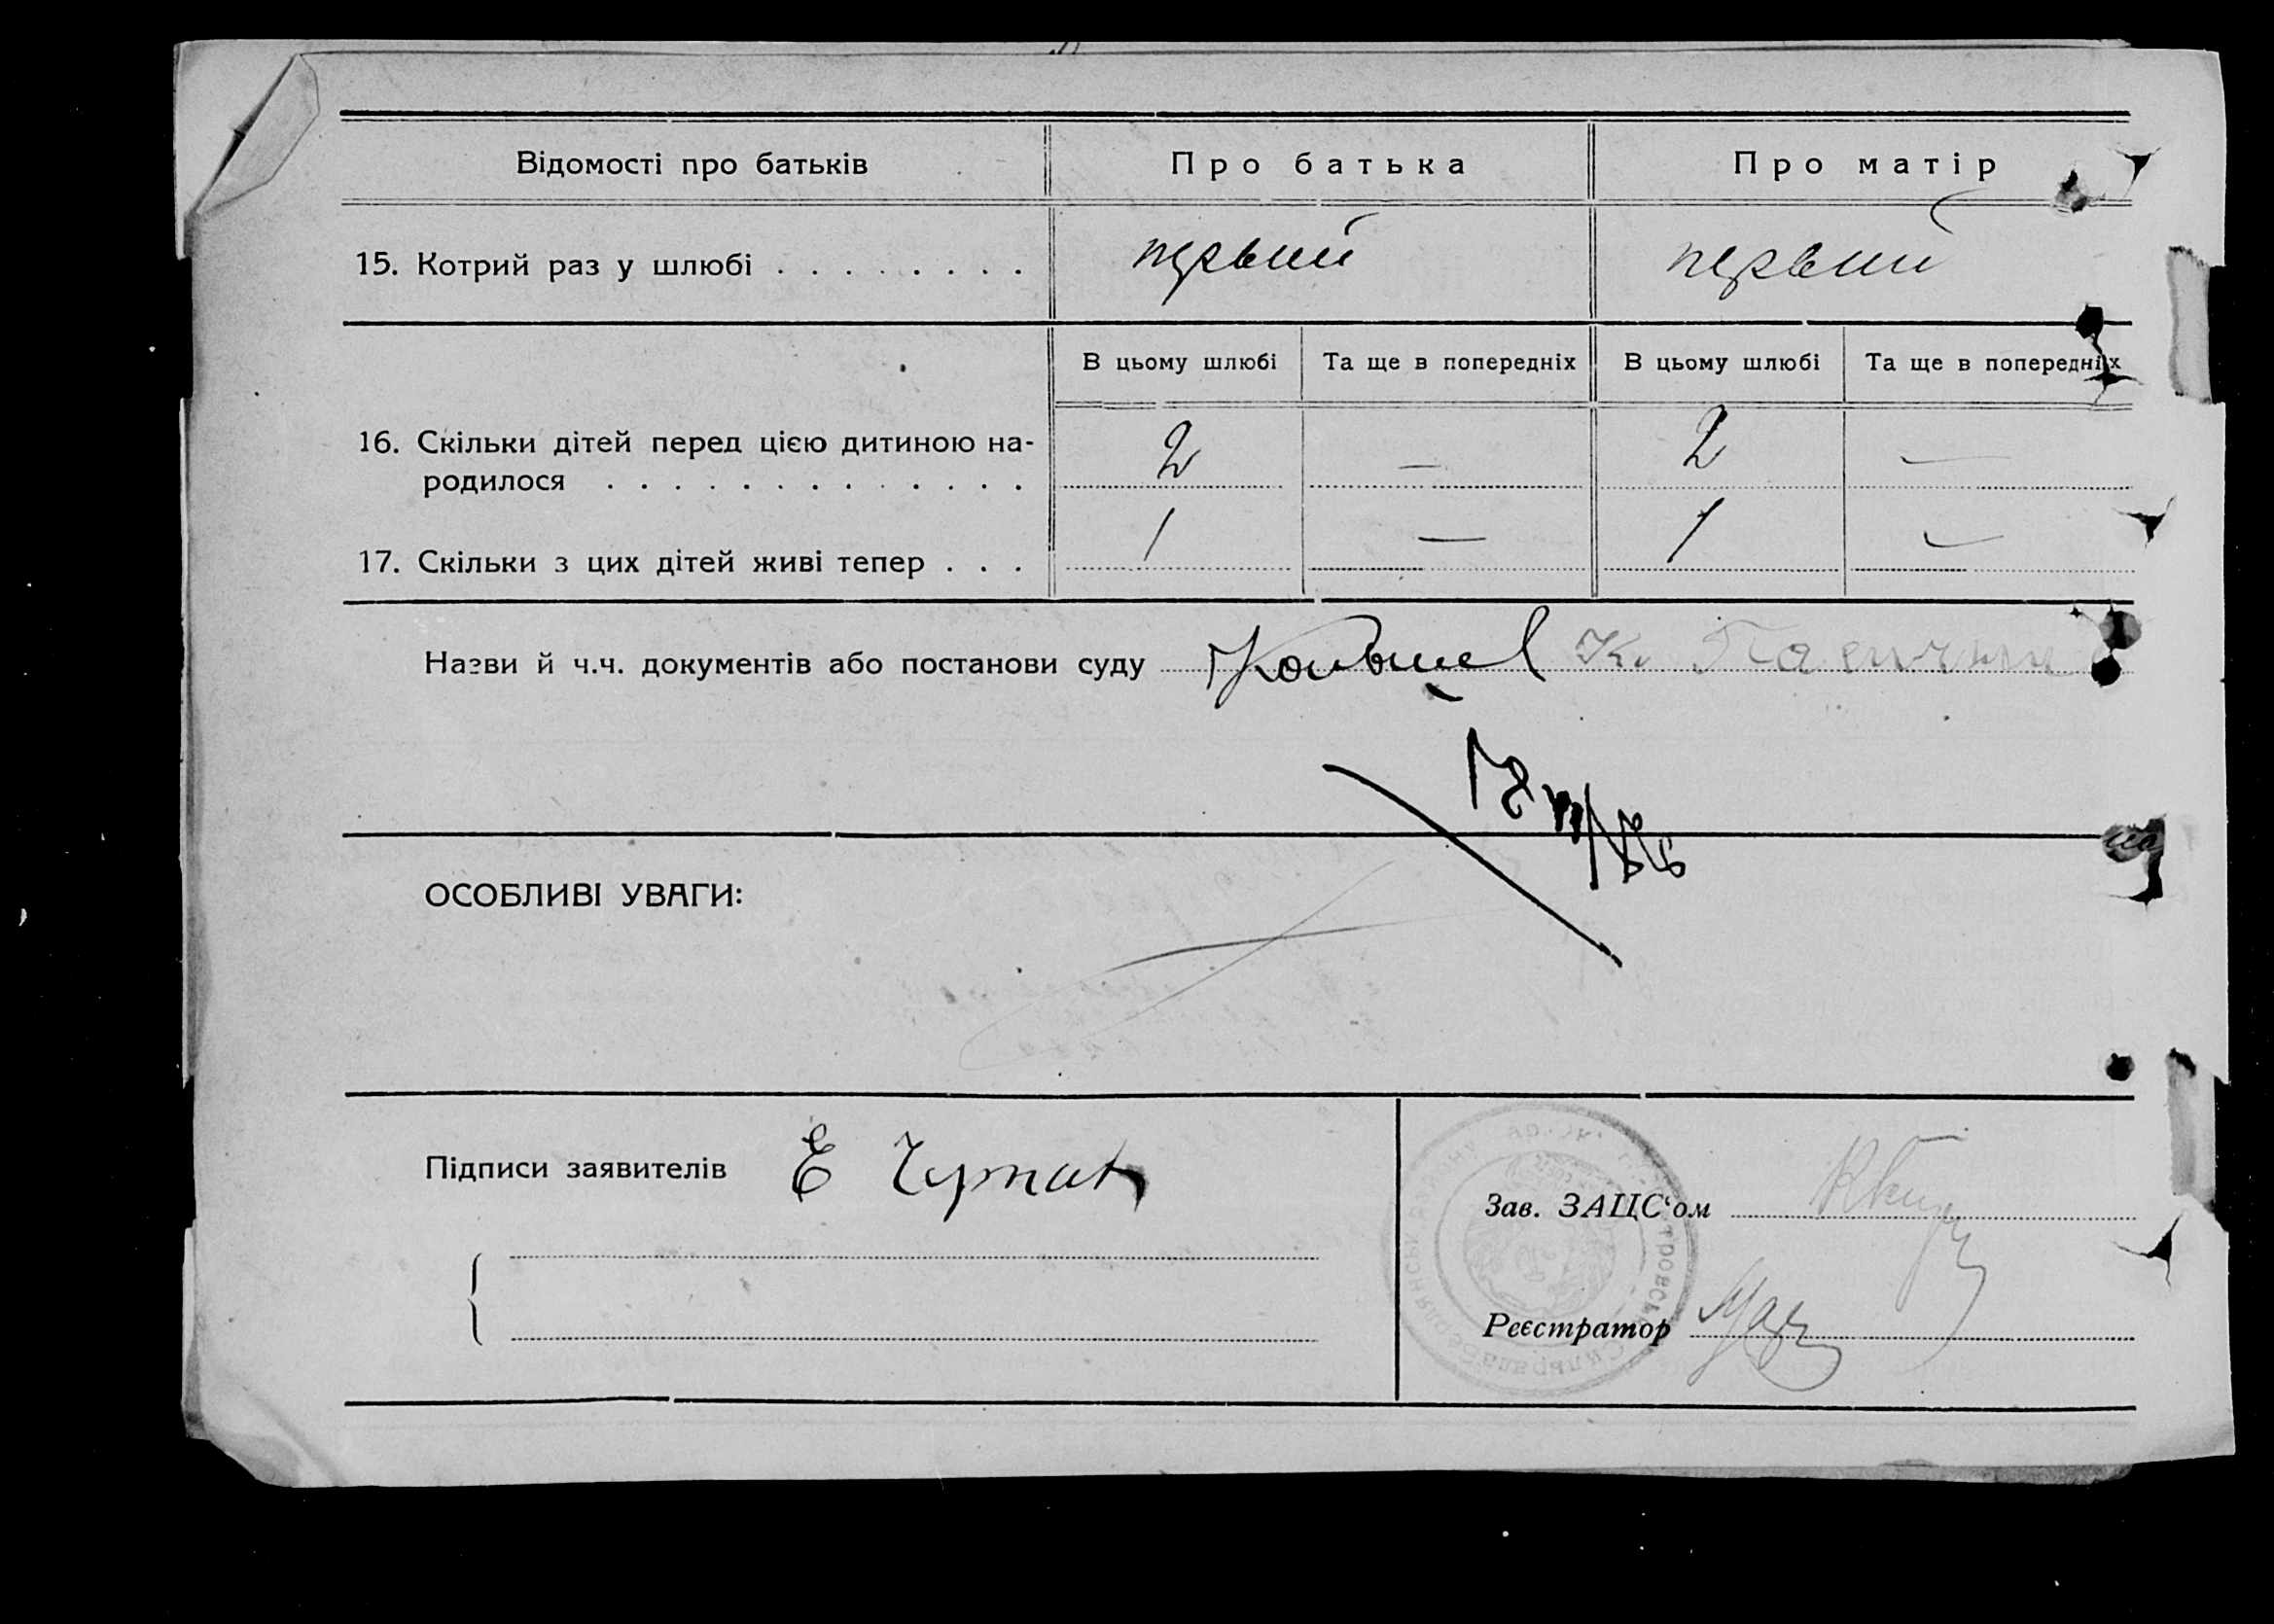 Відомості про батьків Про батька Про матір
15. Котрий раз у шлюбі . . . . . . . . . первий первий
В цьому шлюбі Та ще в попередніх В цьому шлюбі Та ще в попередніх
16. Скільки дітей перед цією дитиною на-
родилося . . . . . . . . . . . . . . 2 — 2 —
17. Скільки з цих дітей живі тепер . . . 1 — 1 —
Назви й ч.ч. документів або постанови суду
ОСОБЛИВІ УВАГИ:
Підписи заявителів Е
Зав. ЗАЦС'ом
Реєстратор